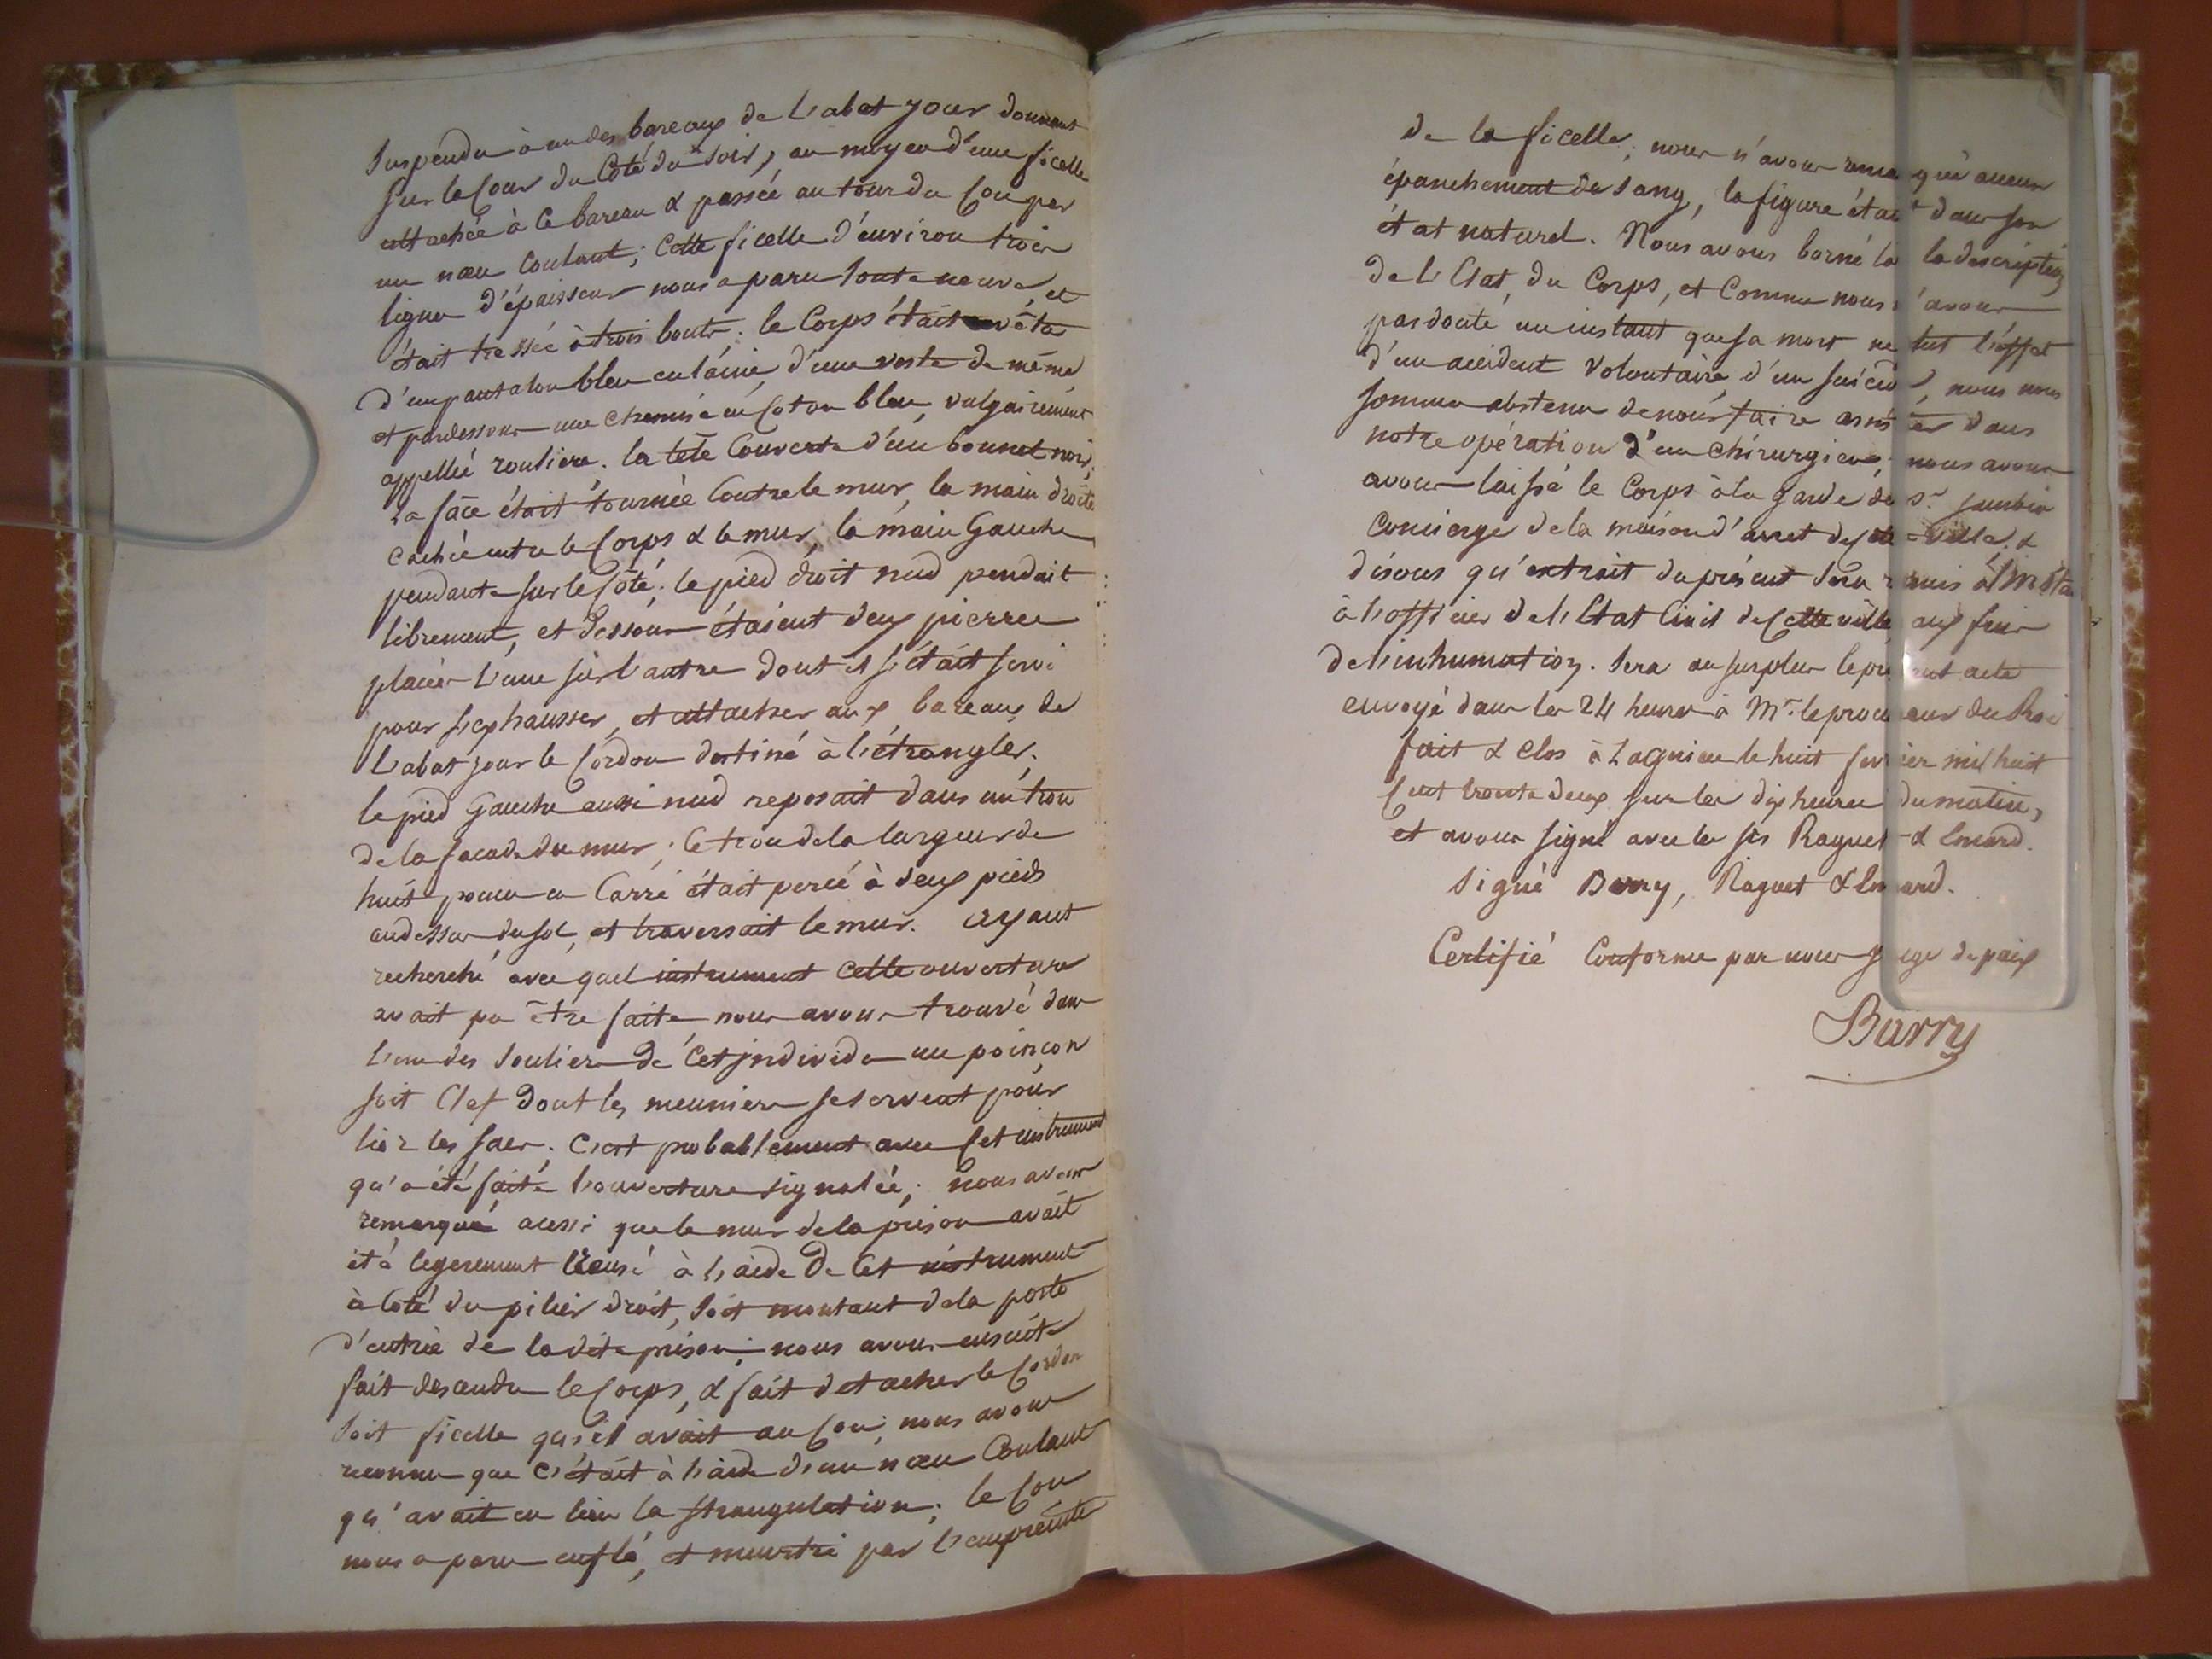 suspendu à un des bareaux de l'abat jour donnant
sur la Cour du Côté du soir, au moyen d'une ficelle
attachée à ce bareau & passée autour du Cou par
un nœu Coulant; Cette ficelle d'environ trois
lignes d'épaisseur nous a paru toute neuve, et
était tressée à trois bouts. le Corps était vêtu
d'un pantalon bleu en laine, d'une veste de même
et pardessous une chemise en Coton bleu, vulgairement
appellée rouliere. la tête Couverte d'un bonnet noir,
la face était tournée Contre le mur, la main droite
cachée entre le Corps & le mur, la main Gauche
pendante sur le Côté. le pied droit nud pendait
librement, et dessous étaient deux pierres
placées l'une sur l'autre dont il s'était servi
pour s'exhausser, et attacher aux bareaux de
l'abat jour le Cordon destiné à l'étrangler.
le pied Gauche aussi nud reposait dans un trou
de la façade du mur; Ce trou de la largeur de
huit pouces en Carré était percé à deux pieds
audessus du sol, et traversait le mur. ayant
recherché avec quel instrument cette ouverture
avait pu être faite nous avons trouvé dans
l'un des souliers de Cet individu un poinçon
soit Clef dont les meuniers se servent pour
lier les sacs. C'est probablement avec Cet instrument
qu'a été faite l'ouverture signalée; nous avons
remarqué aussi que le mur de la prison avait
été legerement Creusé à l'aide de Cet instrument
à Coté du pilier droit, soit montant de la porte
d'entrée de ladite prison; nous avons ensuite
fait descendre le Corps, & fait détacher le Cordon
soit ficelle qu'il avait au Cou; nous avons
reconnu que c'était à l'aide d'un nœu Coulant
qu'avait eu lieu la strangulation; le Cou
nous a paru enflé, et meurtri par l'empreinte
de la ficelle; nous n'avons remarqué aucun
épanchement de sang, la figure était dans son
état naturel. Nous avons borné là la description
de l'Etat du Corps, et Comme nous n'avons
pas douté un instant que sa mort ne fut l'effet
d'un accident volontaire, d'un suicide, nous nous
sommes abstenu de nous faire assister dans
notre opération d'un chirurgien; nous avons
avons laissé le Corps à la garde du Sr
Concierge de la maison d'arret de Cette ville &
disons qu'extrait du présent sera remis à l'instant
à l'officier de l'Etat Civil de Cette ville aux fins
de l'inhumation. sera au surplus le présent acte
envoyé dans les 24 heures à Mr. le procureur du Roi
fait & clos à Lagnieu le huit fevrier mil huit
Cent trente deux sur les dix heures du matin,
et avons signé avec les srs Raguet & Emard.
signé Barry, Raguet & Emard.
Certifié Conforme par nous Juge de paix
Barry